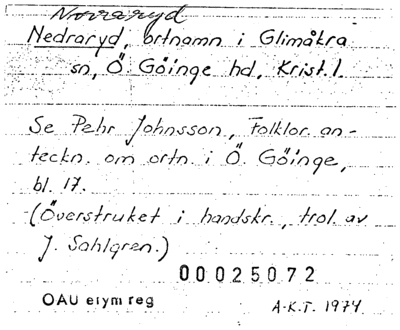 Norraryd
Nedraryd, ortnamn i Glimåkra
sn, Ö. Göinge hd, Krist. l.
Se Pehr Johnsson, Folklor. an-
teckn. om ortn. i Ö. Göinge,
bl. 17.
(Överstruket i handskr., trol. av
J. Sahlgren.)
00025072
OAU etym reg
A.K.T. 1974